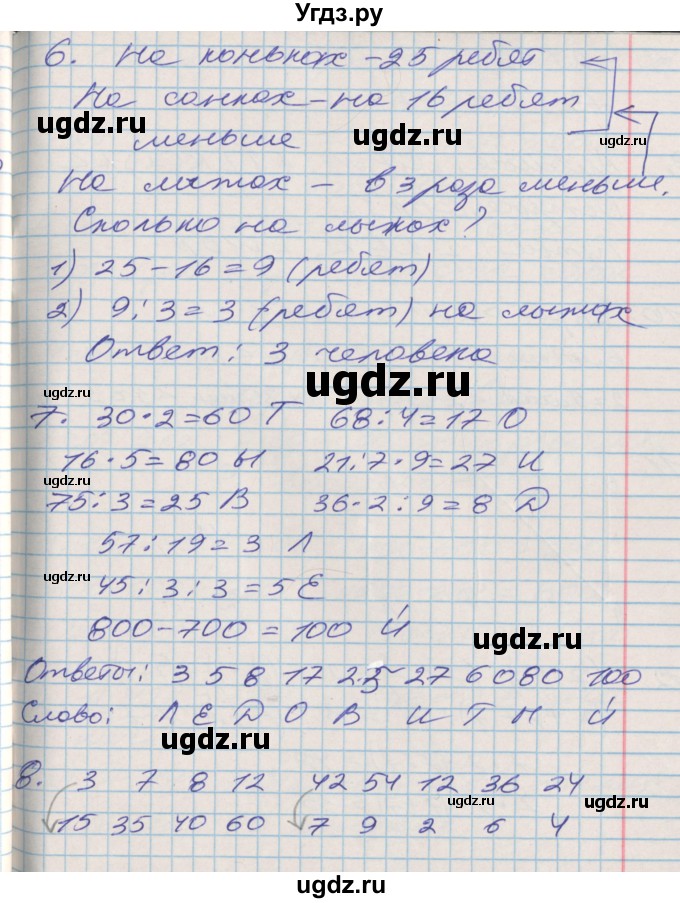 Угдз.ру
6. На коньках - 25 ребят
На санках - на 16 ребят
меньше
На лыжах - в 3 раза меньше.
Сколько на лыжах?
1) 25 - 16 = 9 (ребят)
2) 9 : 3 = 3 (ребят) на лыжах
Ответ: 3 человека
7. 30 · 2 = 60 Т 68 : 4 = 17 О
16 · 5 = 80 Ы 21 : 7 · 9 = 27 И
75 : 3 = 25 В 36 · 2 : 9 = 8 Д
57 : 19 = 3 Л
45 : 3 : 3 = 5 Е
800 - 700 = 100 Й
Ответы: 3 5 8 17 25 27 60 80 100
Слово: Л Е Д О В И Т Ы Й
8. 3 7 8 12 42 54 12 36 24
15 35 40 60 7 9 2 6 4
ugdz.ru
ugdz.ru
ugdz.ru
ugdz.ru
ugdz.ru
ugdz.ru
ugdz.ru
ugdz.ru
ugdz.ru
ugdz.ru
ugdz.ru
ugdz.ru
ugdz.ru
ugdz.ru